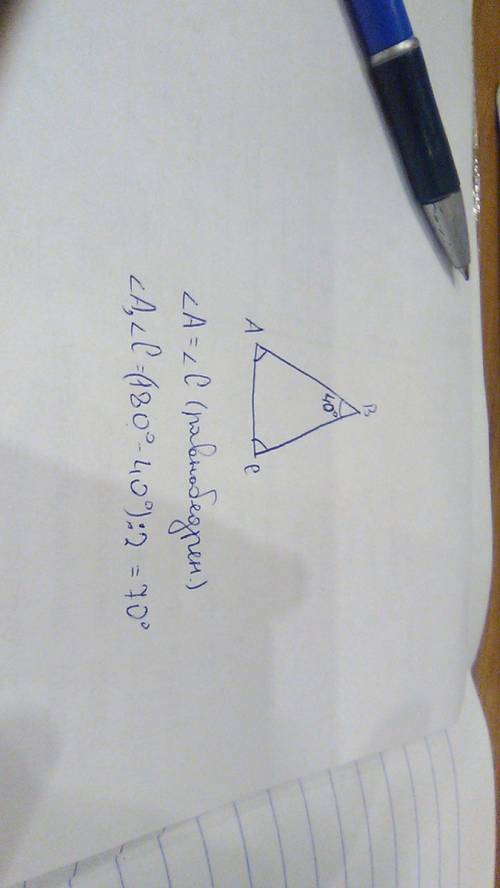 B
40°
A
C
∠A = ∠C (равнобедрен.)
∠A, ∠C = (180° - 40°) : 2 = 70°